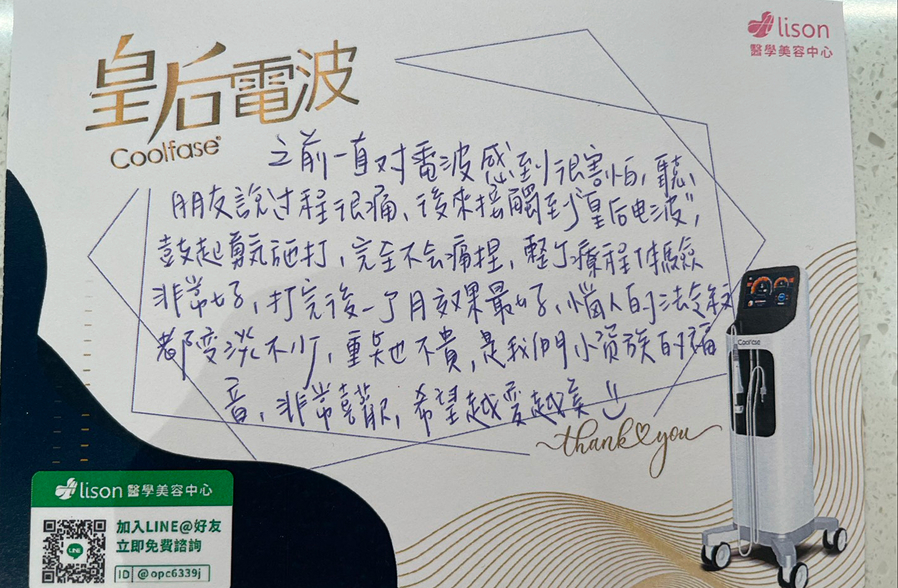 lison
醫學美容中心
皇后電波
Coolfase
之前一直对電波感到很害怕，聽
朋友說过程很痛、後來接觸到“皇后电波”，
鼓起勇氣施打，完全不会痛捏，整个療程体驗
非常好，打完後一个月效果最好，惱人的法令紋
都变淡不少，重点也不貴，是我們小資族的福
音，非常喜歡，希望越变越美
thank you
Coolfase
lison 醫學美容中心
加入LINE@好友
立即免費諮詢
LINE
ID @opc6339j